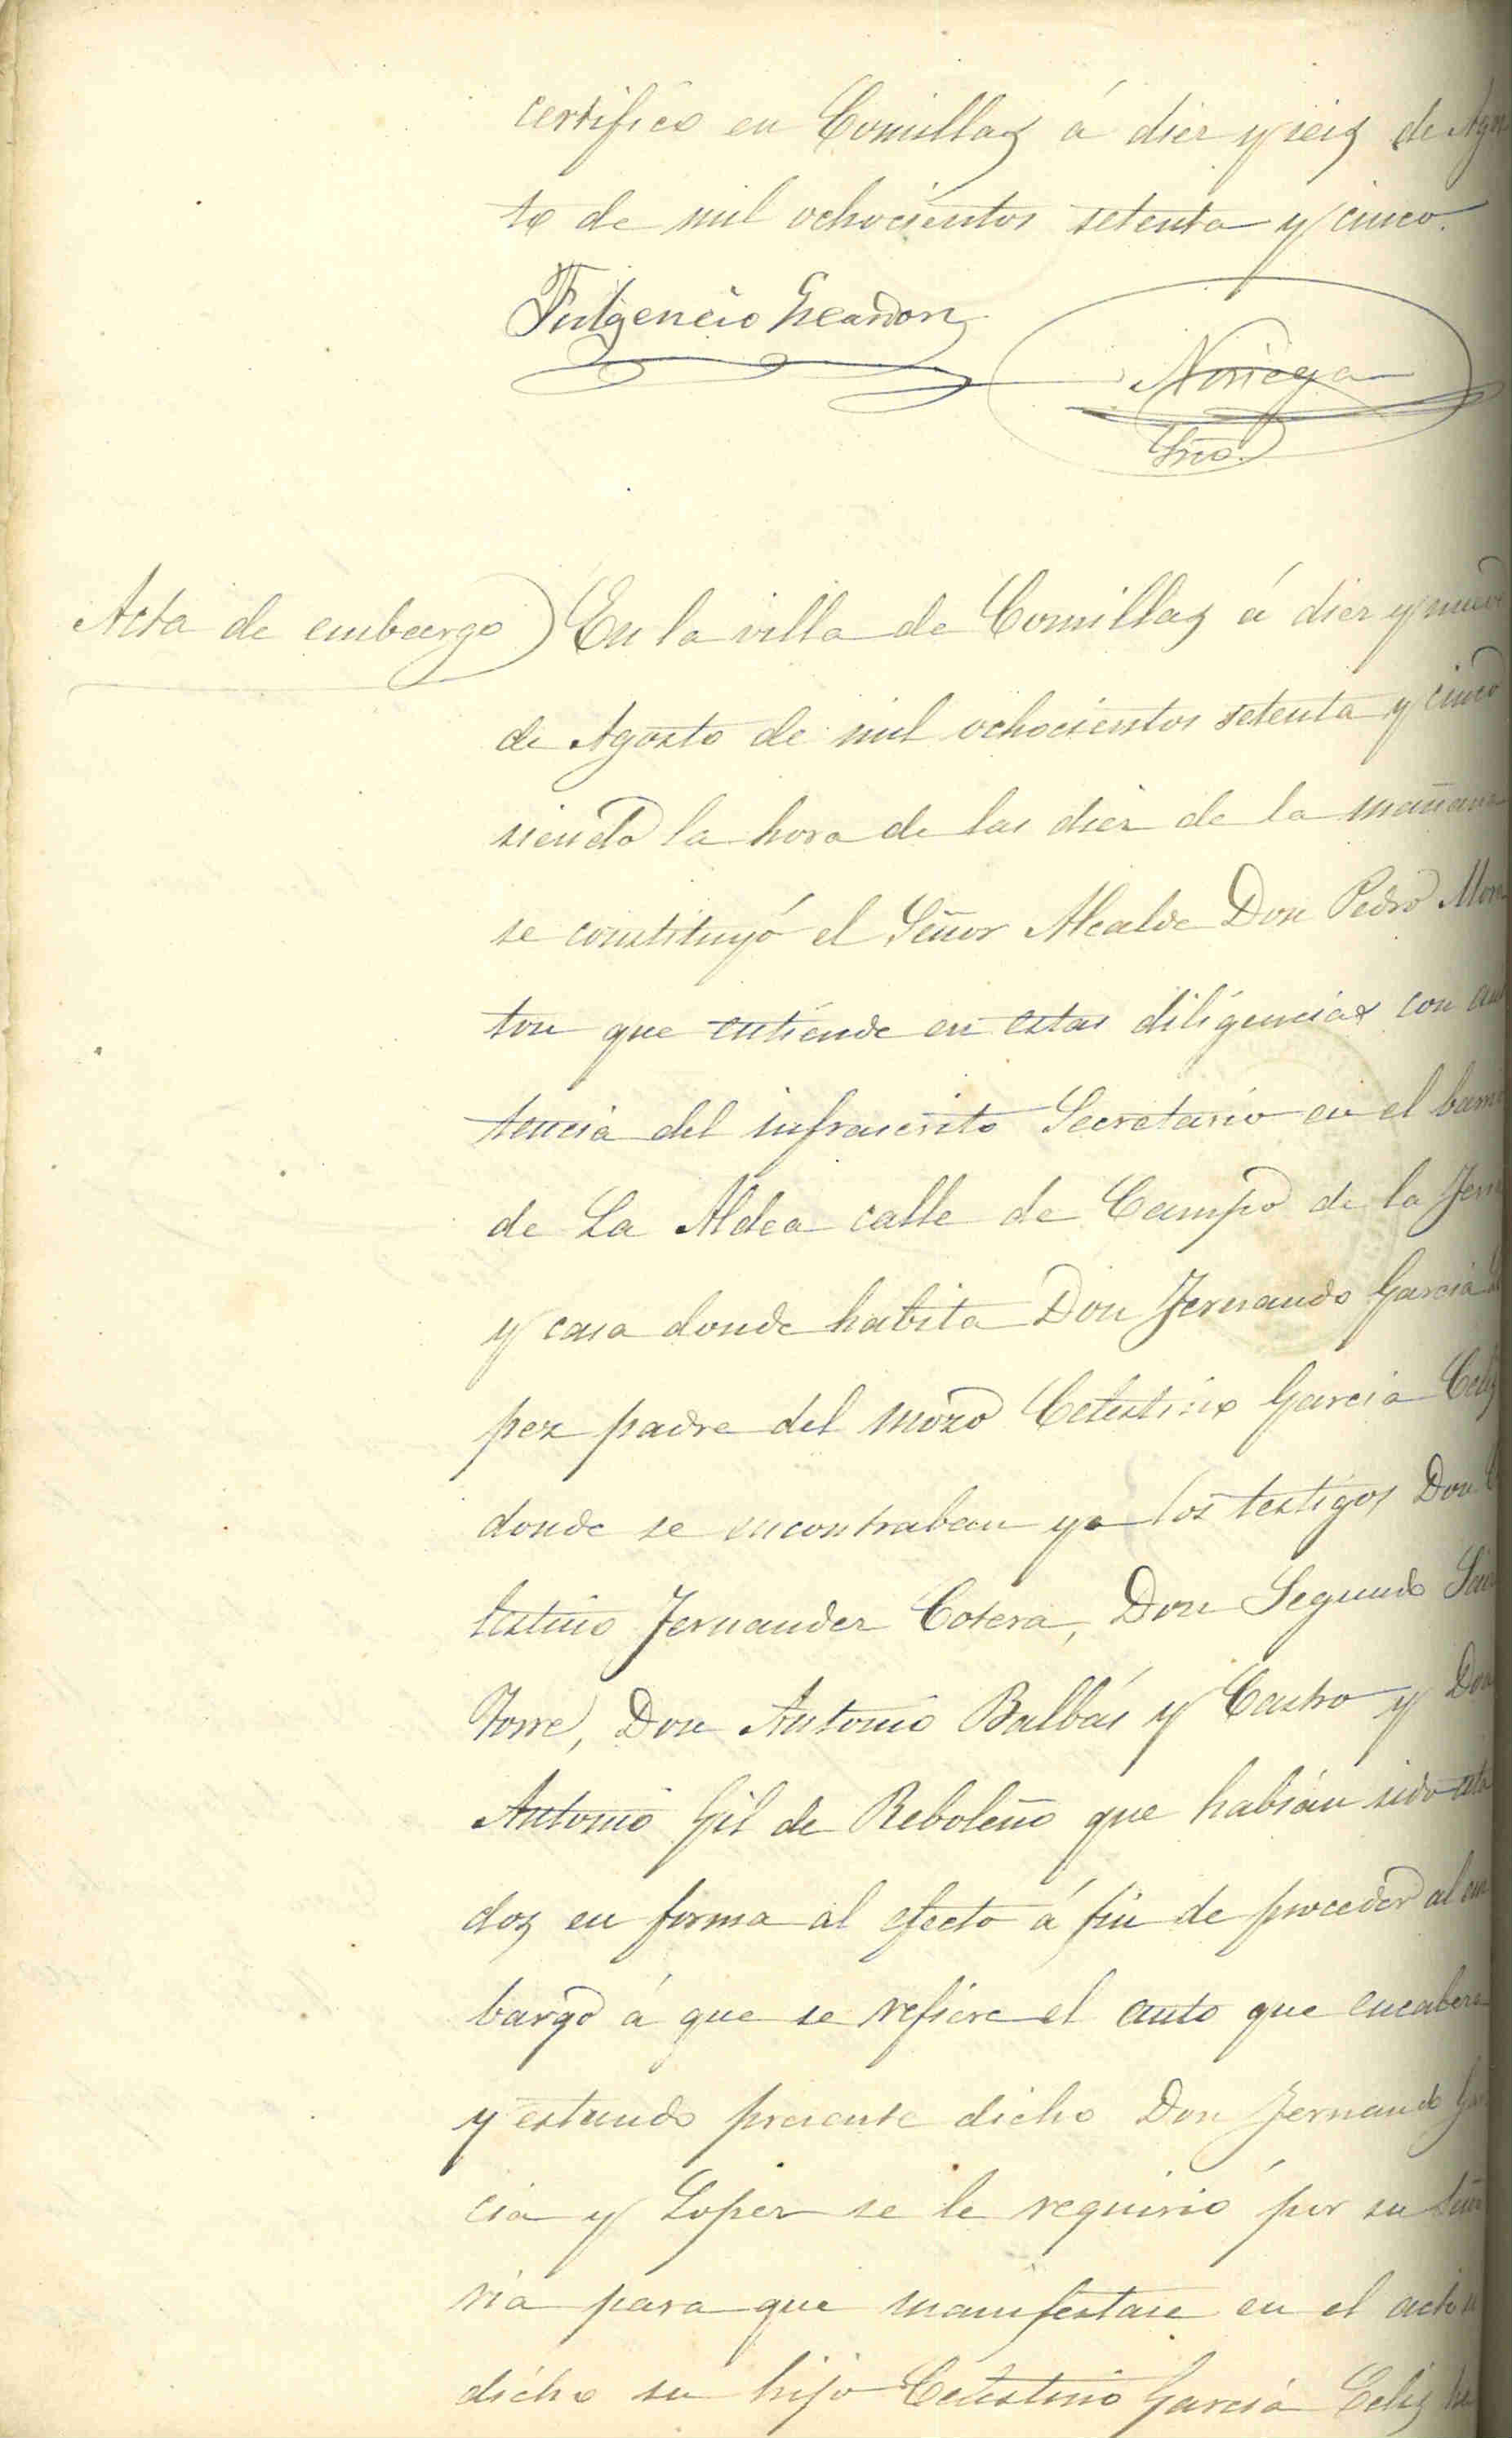 certifico en Comillas á diez y seis de Agos
to de mil ochocientos setenta y cinco.
Fulgencio
Noriega
Srio.
Acta de embargo) En la villa de Comillas á diez y nueve
de Agosto de mil ochocientos setenta y cinco
siendo la hora de las diez de la mañana
se constituyó el Señor Alcalde Don Pedro Mon
ton que entiende en estas diligencias con
tencia del infrascrito Secretario en el barri
de La Aldea calle de Campo de la
y casa donde habita Don Fernando Garcia
pez padre del mozo Celestino Garcia Celis
donde se encontraban ya los testigos Don
lestino Fernandez Cotera, Don Segundo
Torre, Don Antonio Balbás y Castro y Don
Antonio Gil de Reboleño que habían sido cita
dos en forma al efecto á fin de proceder al em
bargo á que se refiere el auto que encabeza
y estando presente dicho Don Fernando Gar
cia y Lopez se le requirió por su Seño
ria para que manifestase en el acto si
dicho su hijo Celestino Garcia Celis